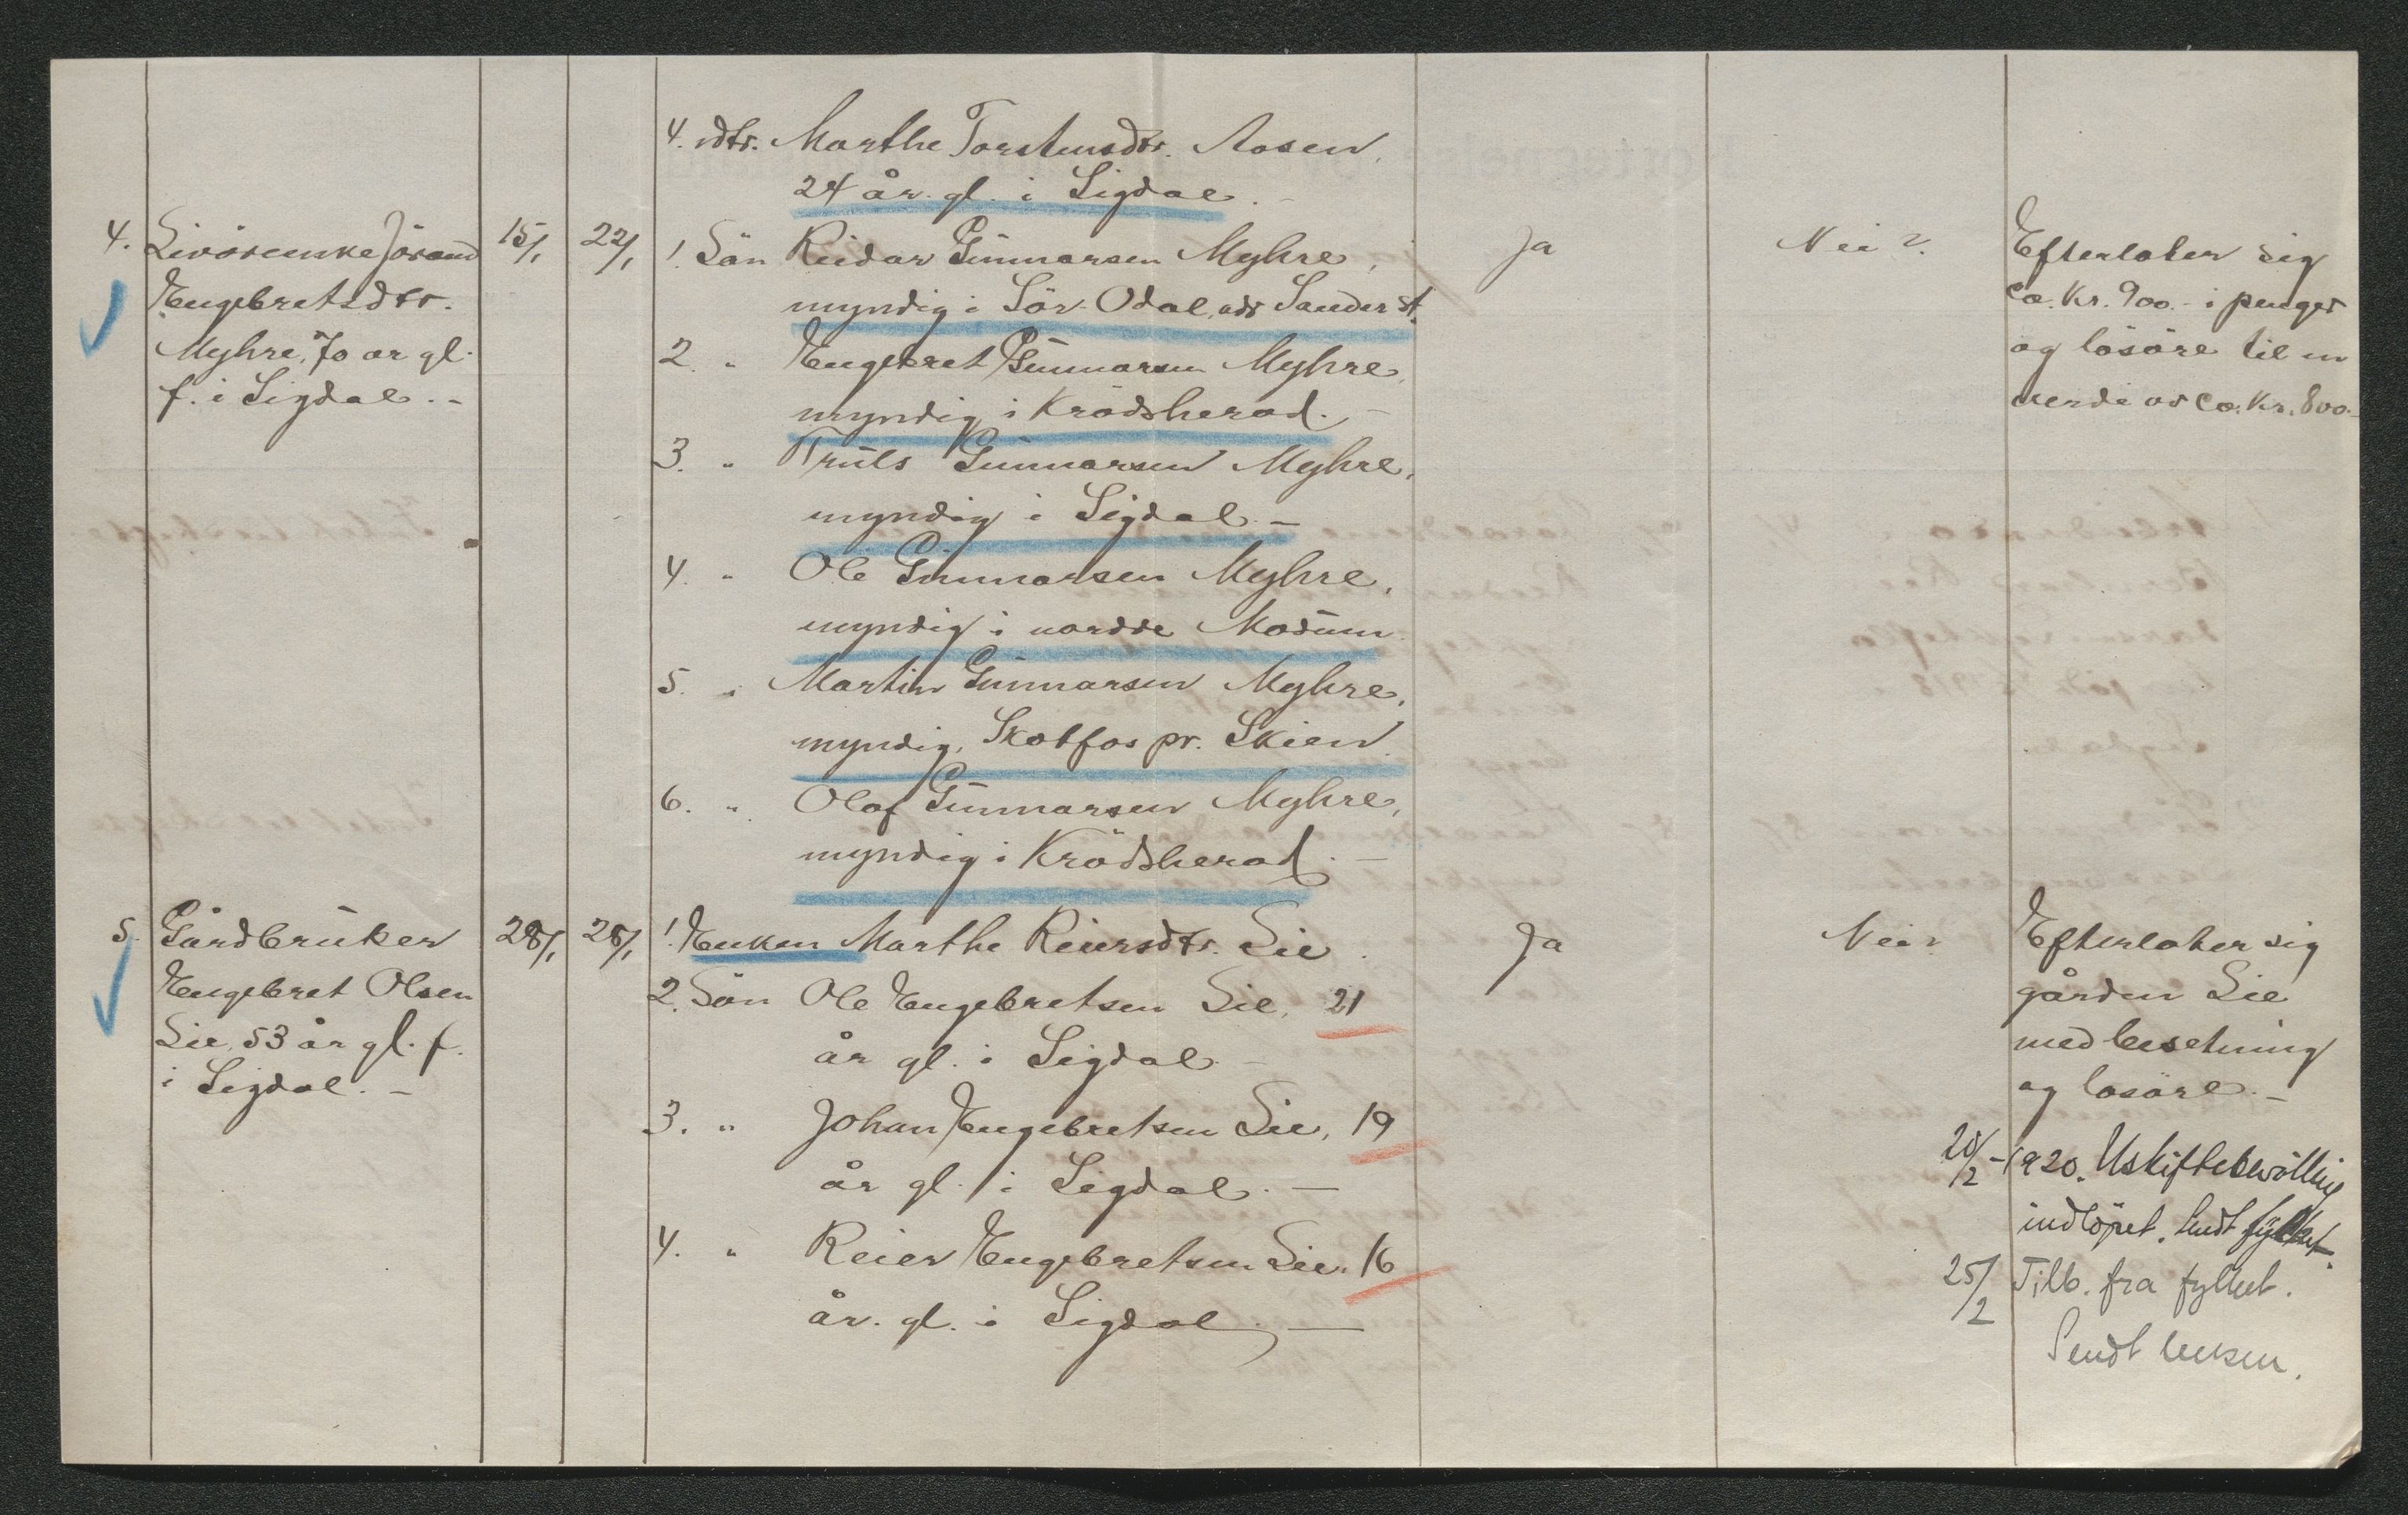 4. dtr. Marthe Torstensdtr. Aasen,
24 år gl. i Sigdal. -
4. Livörenke Jörand
Engebretsdtr.
Myhre, 70 år gl.
f. i Sigdal. -
15/1
22/1
1. Sön Reidar Gunnarsen Myhre,
myndig i Sör-Odal, adr Sander st.
2. " Engebret Gunnarsen Myhre,
myndig i Krödsherad. -
3. " Truls Gunnarsen Myhre,
myndig i Sigdal. -
4. " Ole Gunnarsen Myhre,
myndig i nordre Modum.
5. " Martin Gunnarsen Myhre,
myndig, Skotfos pr. Skien.
6. " Olaf Gunnarsen Myhre,
myndig i Krödsherad. -
Ja
Nei
Efterlater sig
ca. Kr. 900.- i penger
og lösöre til en
verdi av ca. Kr. 800.-
5. Gårdbruker
Engebret Olsen
Lie, 53 år gl. f.
i Sigdal. -
28/1
28/1
1. Enken Marthe Reiersdtr. Lie.
2. Sön Ole Engebretsen Lie, 21
år gl. i Sigdal. -
3. " Johan Engebretsen Lie, 19
år gl. i Sigdal. -
4. " Reier Engebretsen Lie, 16
år. gl. i Sigdal. -
Ja
Nei
Efterlater sig
gården Lie
med besetning
og lösöre. -
20/2 - 1920. Uskiftebevilling
indlöpet. Sendt fylket.
25/2 Tilb. fra fylket.
Sendt enken.